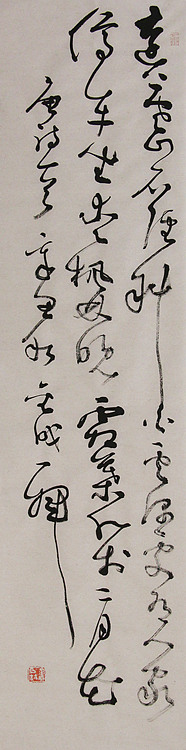 遠上寒山石徑斜白雲深處有人家
停車坐愛楓林晚霜葉紅於二月花
唐詩一首